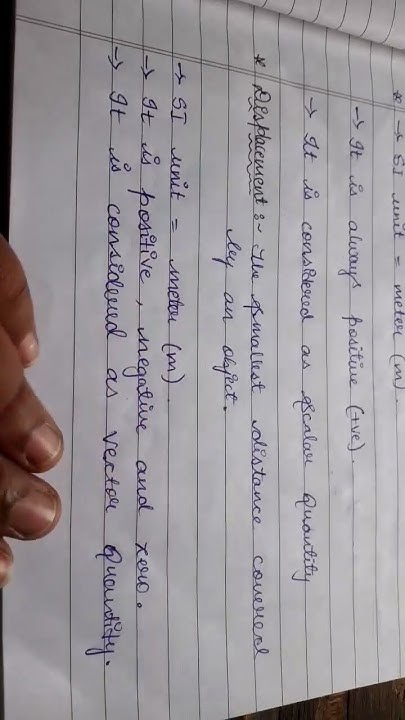 * → SI unit = meter (m).
→ It is always positive (+ve).
→ It is considered as scalar quantity
* Displacement :- The smallest distance covered
by an object.
→ SI unit = meter (m).
→ It is positive, negative and zero.
→ It is considered as vector quantity.